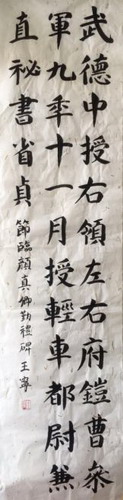 武德中授右領左右府鎧曹叅
軍九秊十一月授輕車都尉兼
直祕書省貞
節臨顏真卿勤禮碑 王寧